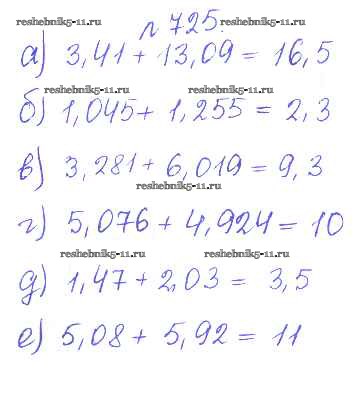 reshebnik5-11.ru № 725. reshebnik5-11.ru
а) 3,41 + 13,09 = 16,5
reshebnik5-11.ru reshebnik5-11.ru
б) 1,045 + 1,255 = 2,3
в) 3,281 + 6,019 = 9,3
reshebnik5-11.ru
г) 5,076 + 4,924 = 10
reshebnik5-11.ru reshebnik5-11.ru
д) 1,47 + 2,03 = 3,5
е) 5,08 + 5,92 = 11